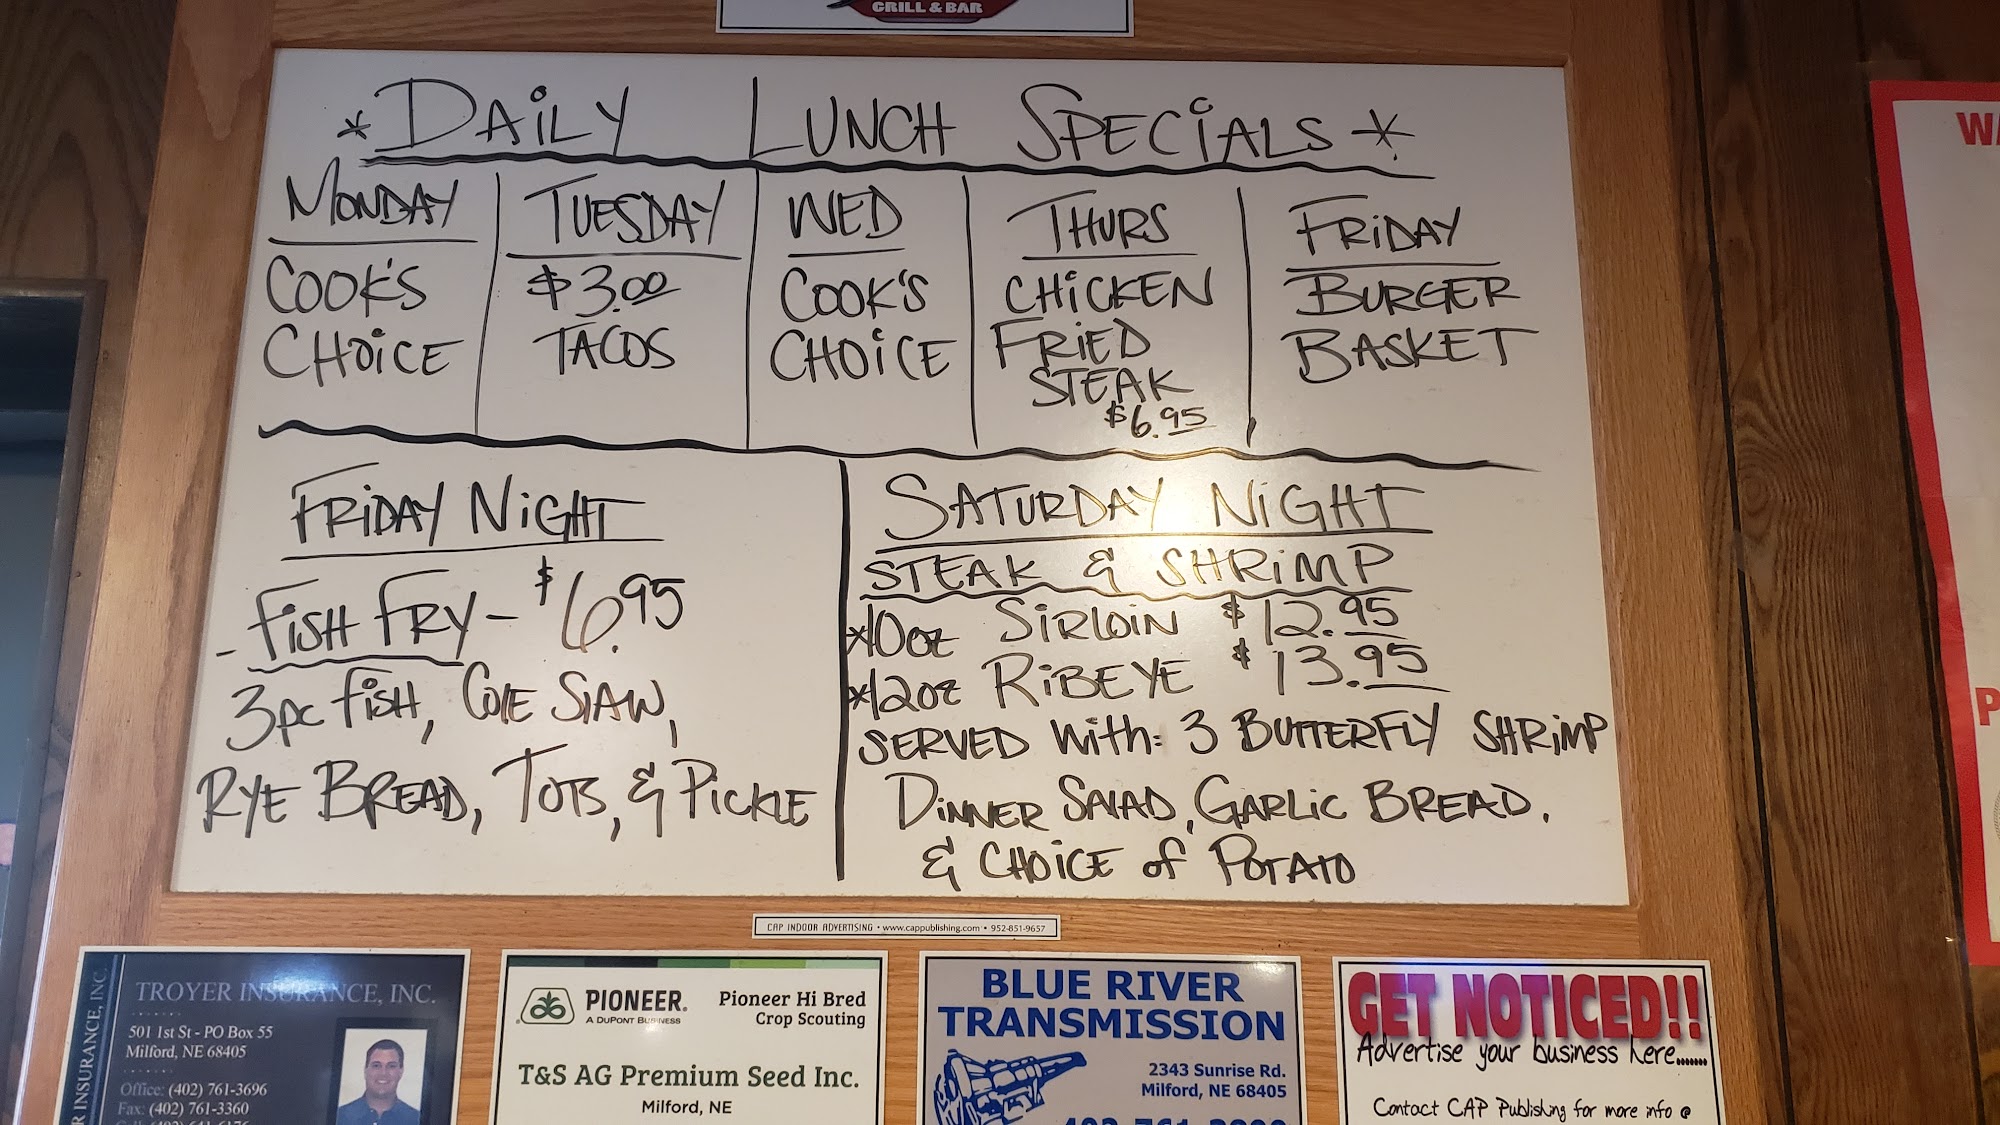 GRILL & BAR
* DAILY LUNCH SPECIALS *
MONDAY
COOK'S
CHOICE
TUESDAY
$3.00
TACOS
WED
COOK'S
CHOICE
THURS
CHICKEN
FRIED
STEAK
$6.95
FRIDAY
BURGER
BASKET
FRIDAY NIGHT
- FISH FRY - $6.95
3pc FISH, COLE SLAW,
RYE BREAD, TOTS, & PICKLE
SATURDAY NIGHT
STEAK & SHRIMP
*10oz SIRLOIN $12.95
*12oz RIBEYE $13.95
SERVED With: 3 BUTTERFLY SHRIMP
DINNER SALAD, GARLIC BREAD,
& CHOICE of POTATO
CAP INDOOR ADVERTISING • www.cappublishing.com • 952-851-9657
TROYER INSURANCE, INC.
501 1st St - PO Box 55
Milford, NE 68405
Office: (402) 761-3696
Fax: (402) 761-3360
R INSURANCE, INC.
PIONEER.
A DUPONT BUSINESS
Pioneer Hi Bred
Crop Scouting
T&S AG Premium Seed Inc.
Milford, NE
BLUE RIVER
TRANSMISSION
2343 Sunrise Rd.
Milford, NE 68405
GET NOTICED!!
Advertise your business here.......
Contact CAP Publishing for more info @